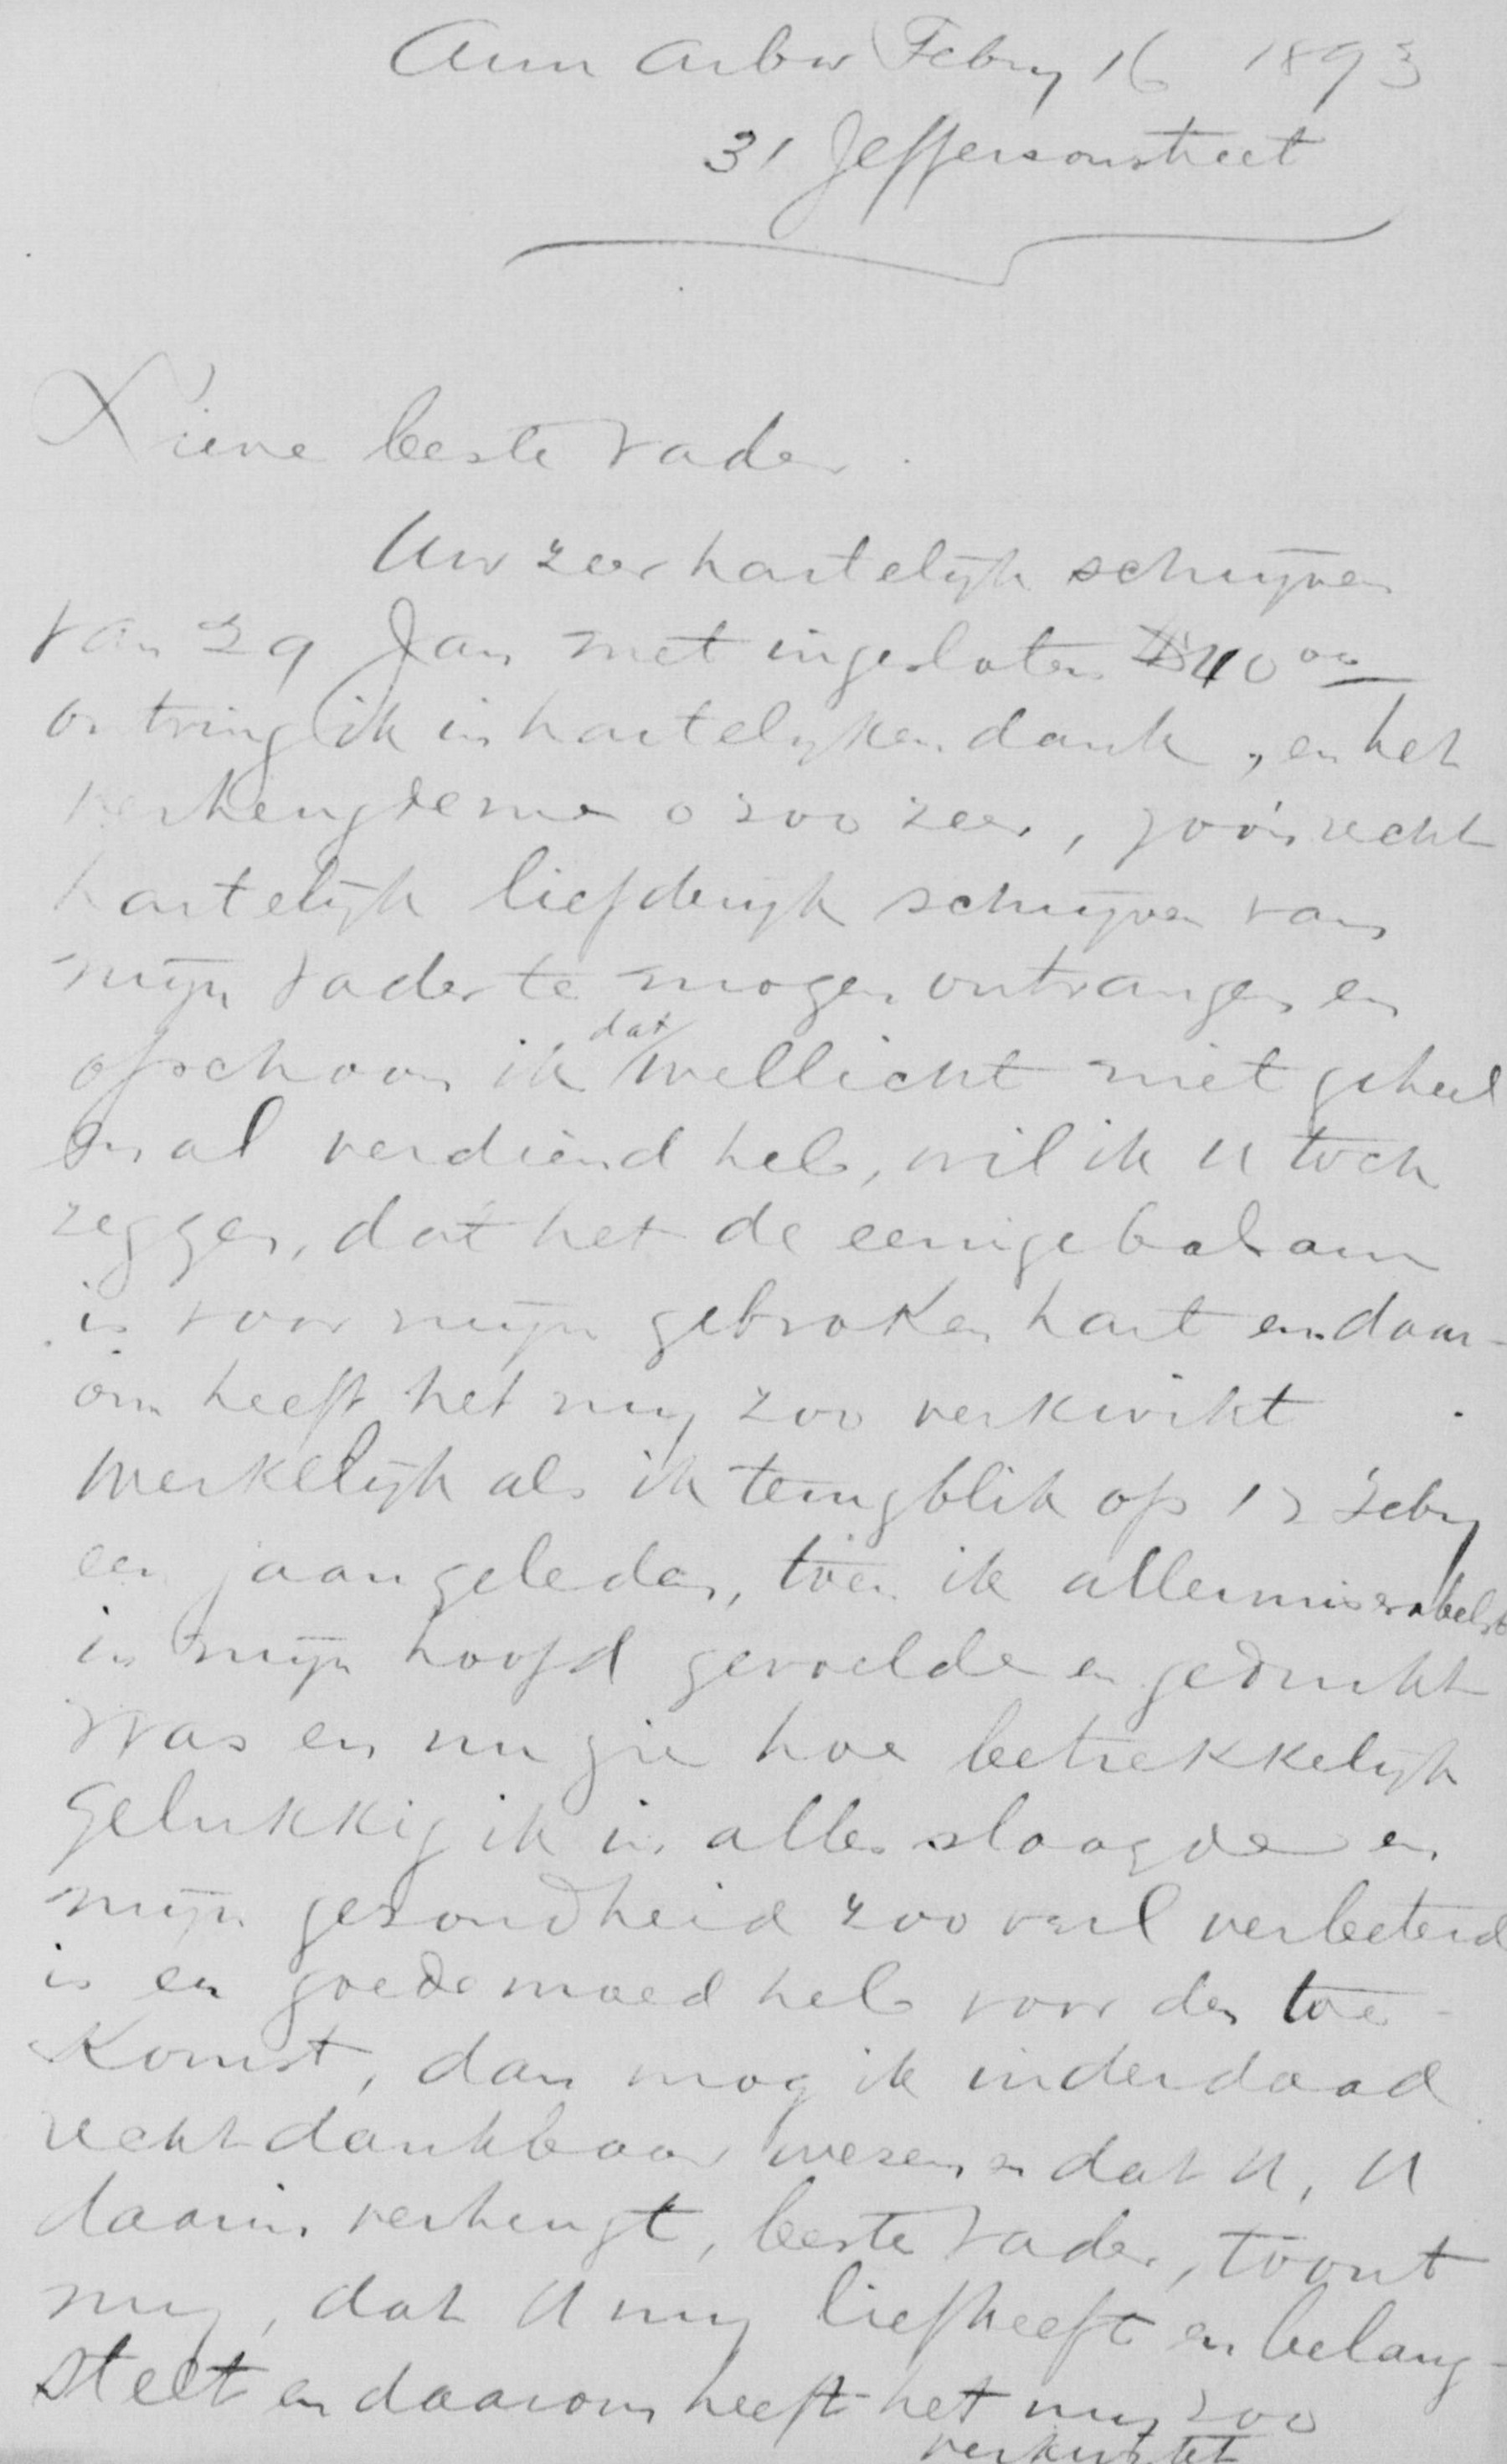 Ann Arbor Febry 16 1893
31 Jeffersonstreet
Lieve beste Vader.
Uw zeer hartelijk schrijven
van 29 Jan met ingesloten $40 00
ontving ik in hartelijken dank, en het
verheugde me o zoo zeer, zoo'n recht
hartelijk liefderijk schrijven van
mijn Vader te mogen ontvangen en
ofschoon ik dat wellicht niet geheel
en al verdiend heb, wil ik U toch
zeggen, dat het de eenige balsam
is voor mijn gebroken hart en daar-
om heeft het mij zoo verkwikt
Werkelijk als ik terugblik op 12 Febry
een jaar geleden, toen ik allermiserabelst
in mijn hoofd gevoelde en gedrukt
was en nu zie hoe betrekkelijk
gelukkig ik in alles slaagde en
mijn gezondheid zooveel verbeterd
is en goede moed heb voor den toe-
komst, dan mag ik inderdaad
recht dankbaar wezen en dat U, U
daarin verheugt, beste Vader, toont
mij, dat U mij liefheeft en belang-
stelt en daarom heeft het mij zoo
verkwikt